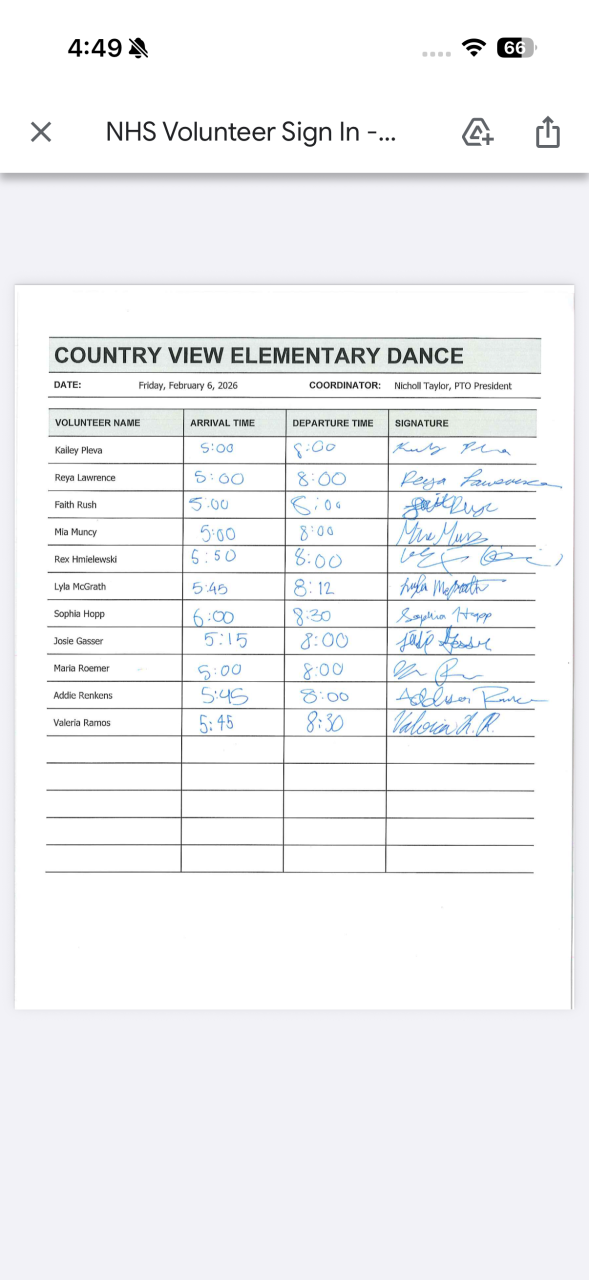 4:49
66
NHS Volunteer Sign In -...
COUNTRY VIEW ELEMENTARY DANCE
DATE: Friday, February 6, 2026 COORDINATOR: Nicholl Taylor, PTO President
VOLUNTEER NAME ARRIVAL TIME DEPARTURE TIME SIGNATURE
Kailey Pleva 5:00 8:00
Reya Lawrence 5:00 8:00 Reya Lawrence
Faith Rush 5:00 8:00 Faith Rush
Mia Muncy 5:00 8:00 Mia Muncy
Rex Hmielewski 5:50 8:00
Lyla McGrath 5:45 8:12 Lyla McGrath
Sophia Hopp 6:00 8:30 Sophia Hopp
Josie Gasser 5:15 8:00 Josie Gasser
Maria Roemer 5:00 8:00
Addie Renkens 5:45 8:00 Addison
Valeria Ramos 5:45 8:30 Valeria R.R.